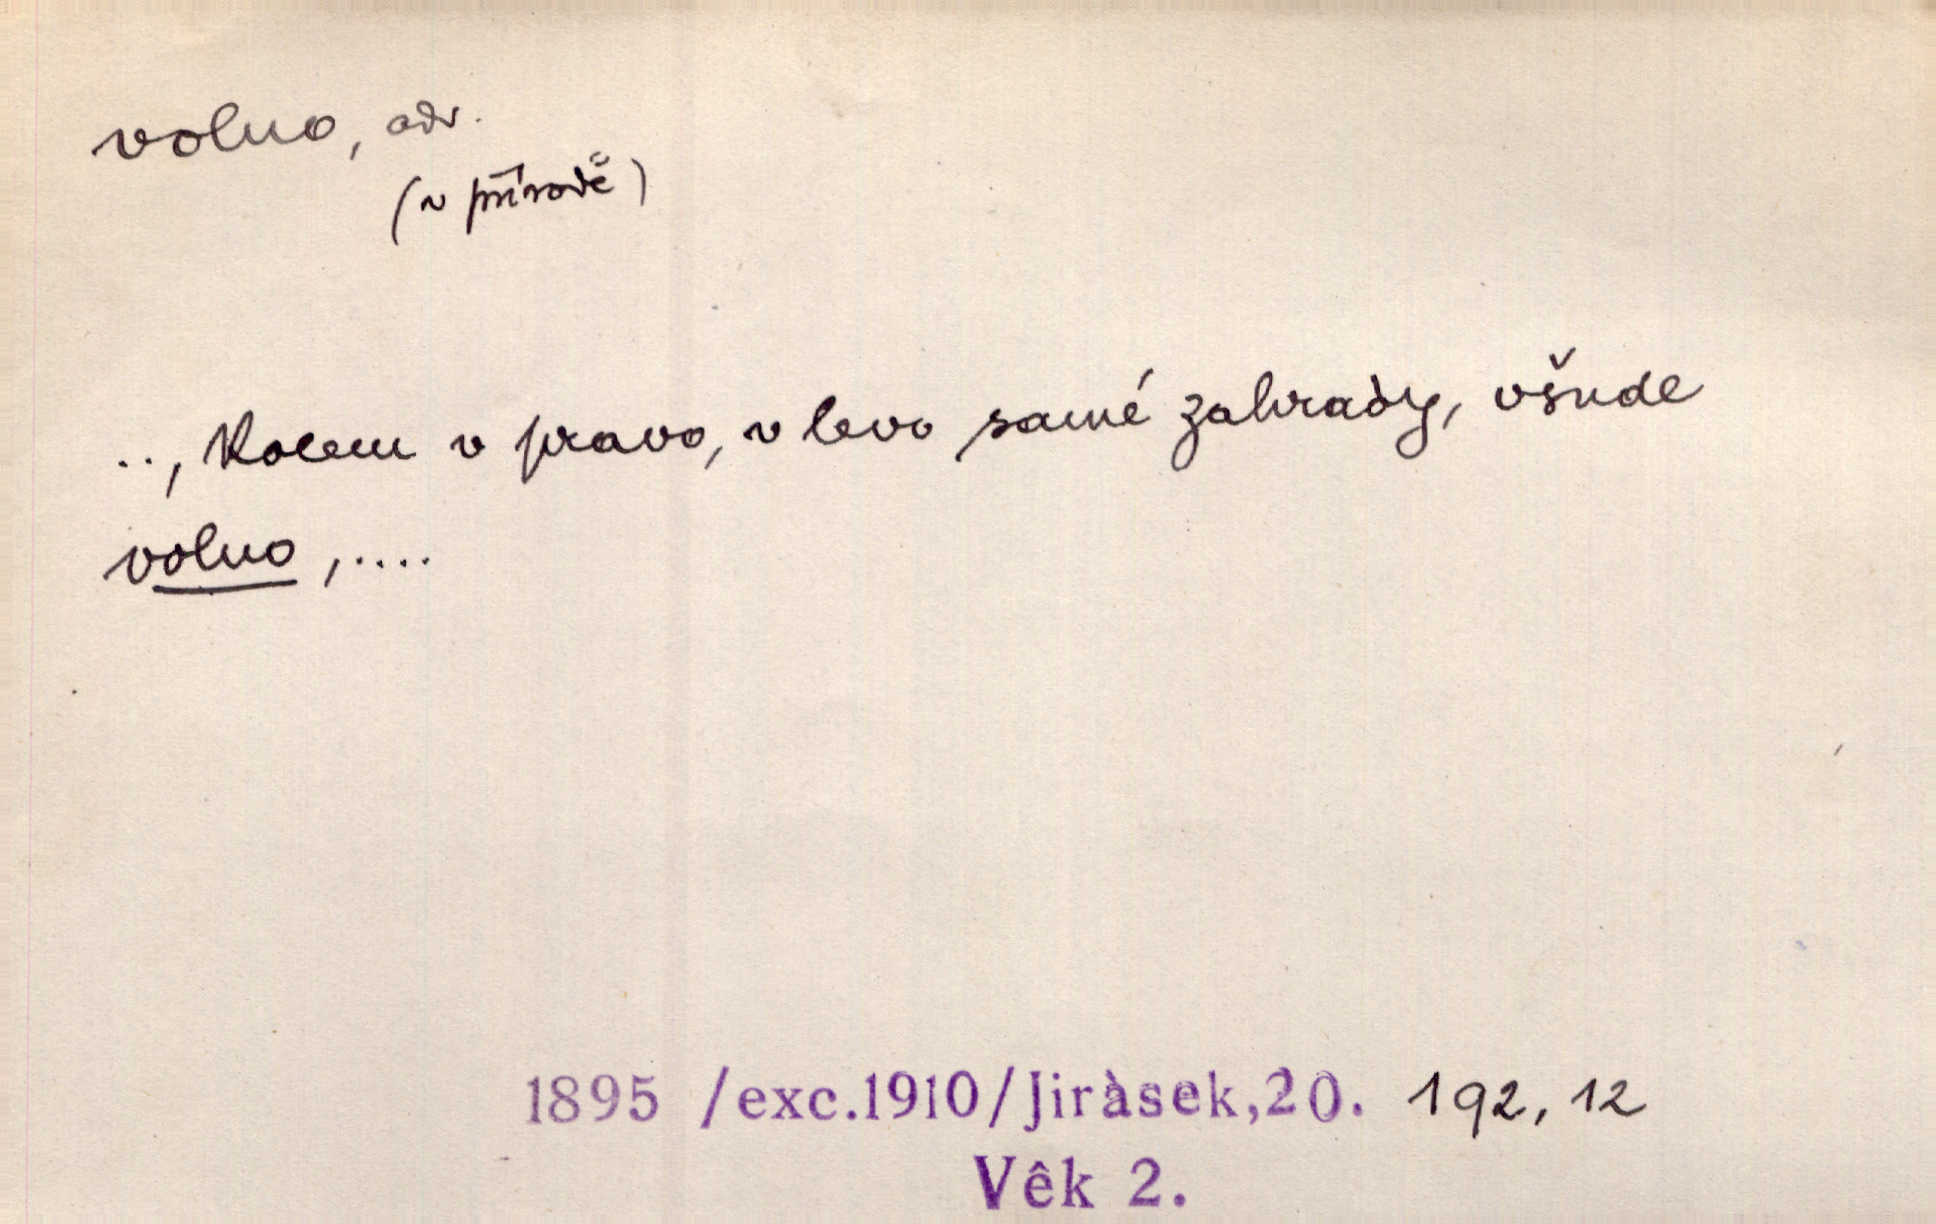 volno, adv.
(v přírodě)
.., Kolem v pravo, v levo samé zahrady, všude
volno,....
1895 /exc.1910/Jiràsek,20. 192, 12
Vêk 2.